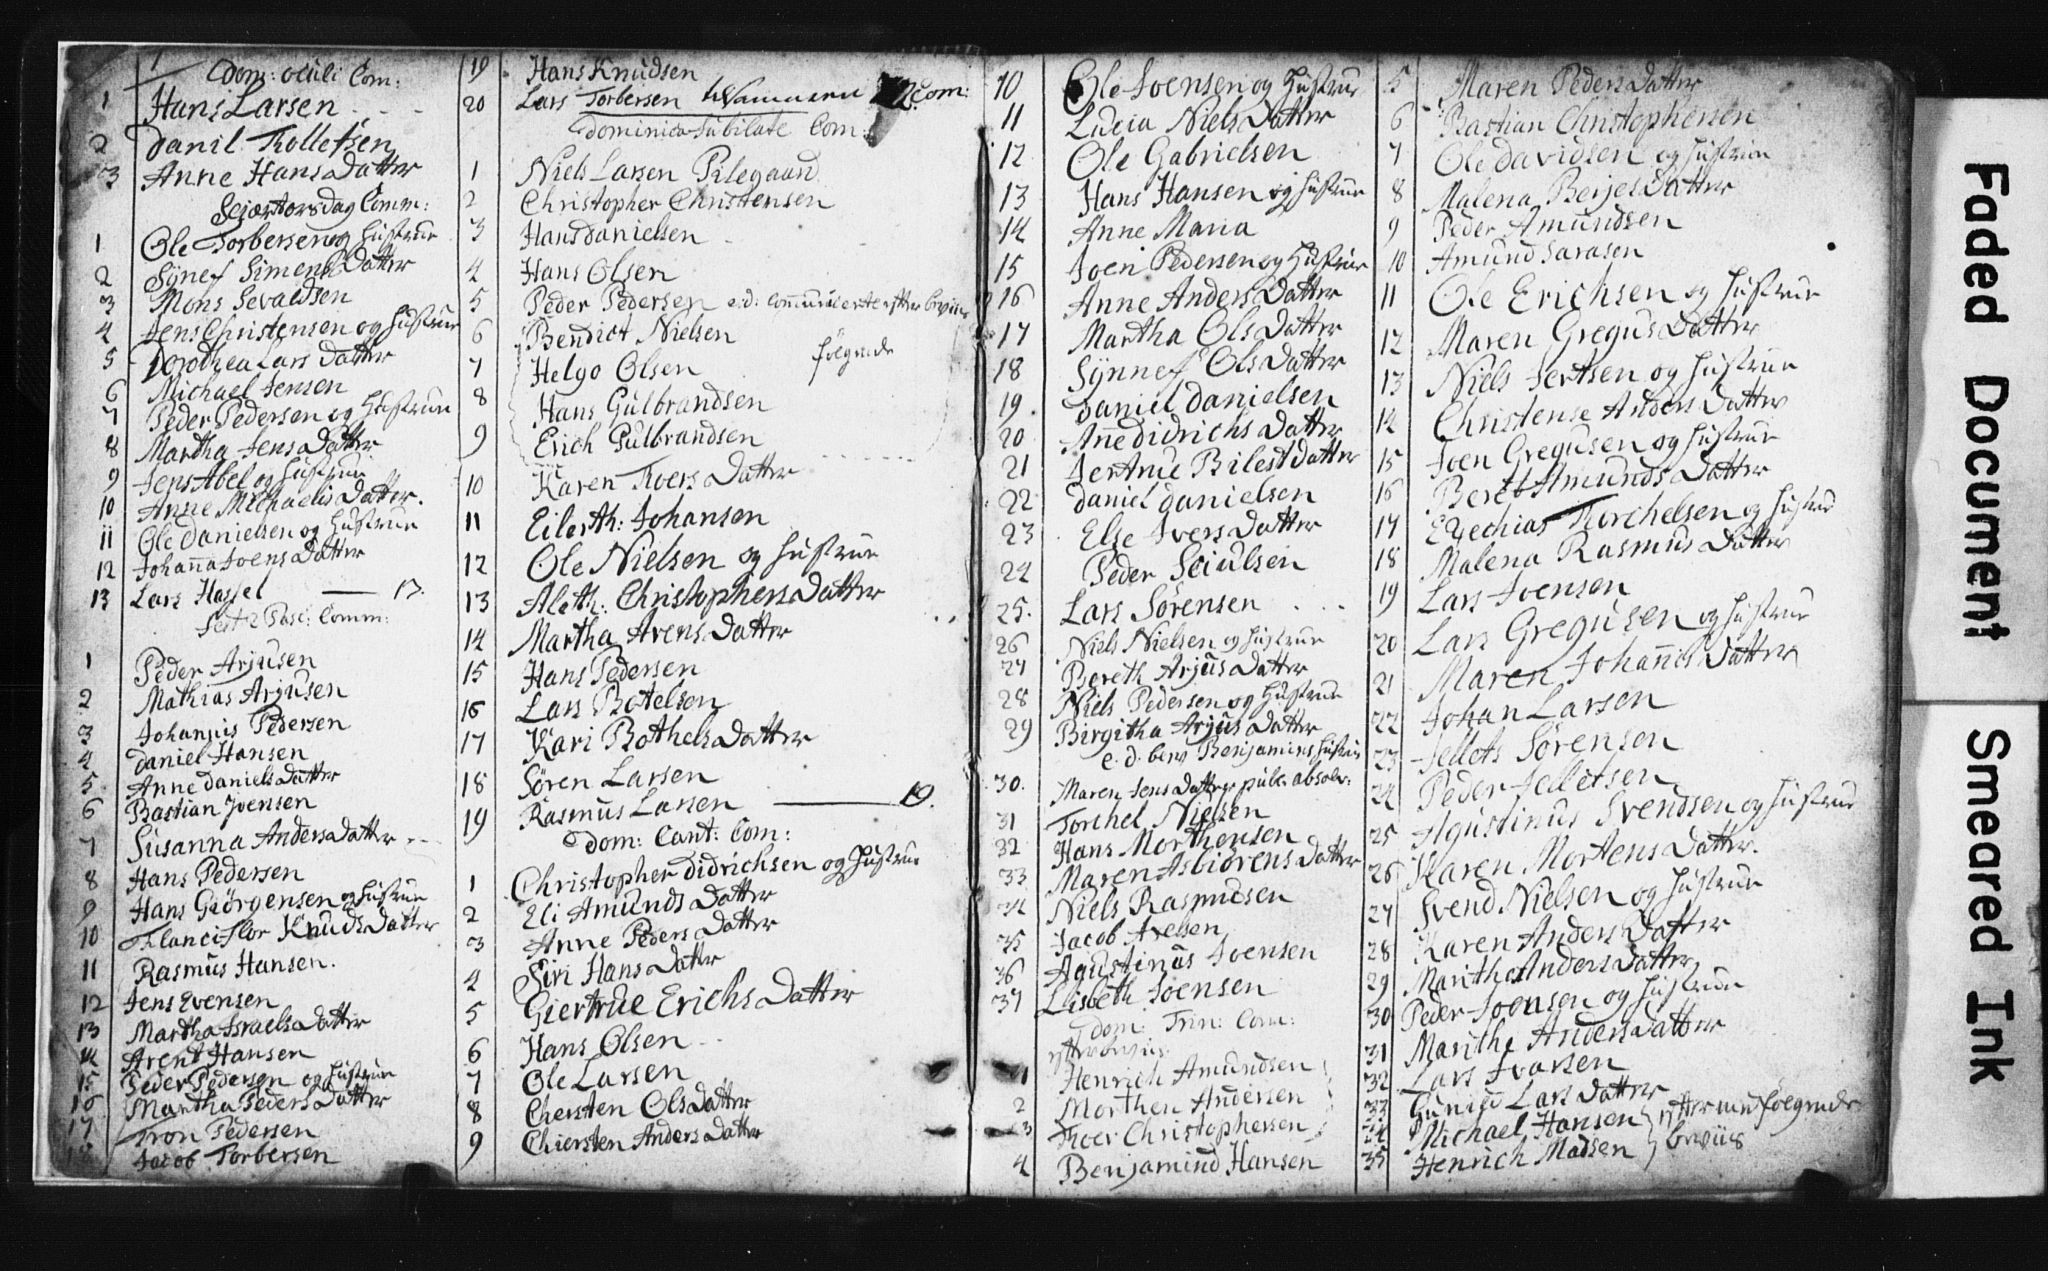 1
Dom: oculi Com:
1 Hans Larsen
2 Danil Tollefsen
3 Anne Hans Datter
Scjærtorsdag Comm:
1 Ole Torbersen og Hustrue
2 Synef Simens Datter
3 Mons Sevaldsen
4 Jens Christensen og Hustrue
5 Dorothea Lars Datter
6 Michael Jensen
7 Peder Pedersen og Hustrue
8 Martha Jens Datter
9 Jens Abel og Hustrue
10 Anne Michaelis Datter.
11 Ole Danielsen og Hustrue
12 Johanna Joens Datter
13 Lars Hassel — 13.
Fest: 2 Pasc: Comm:
1 Peder Arjusen
2 Mathias Arjusen
3 Johannis Pedersen
4 Daniel Hansen
5 Anne Daniels Datter
6 Bastian Joensen
7 Susanna Anders Datter
8 Hans Pedersen
9 Hans Giörgensen og Hustrue
10 Knuds Datter
11 Rasmus Hansen.
12 Jens Evensen
13 Martha Israels Datter
14 Arent Hansen
15 Peder Pedersen og Hustrue
16 Martha Peders Datter
17 Tron Pedersen
18 Jacob Torbersen
19 Hans Knudsen
20 Lars Torbersen tilsammen Com:
Dominica Jubilate Com:
1 Niels Larsen
2 Christopher Christensen
3 Hans Danielsen
4 Hans Olsen
5 Peder Pedersen e.d: Communicerte efter beviis
6 Bendict Nielsen
7 Helgo Olsen følgende
8 Hans Gulbrandsen
9 Erich Gulbrandsen
10 Karen Toers Datter
11 Eilerth: Johansen
12 Ole Nielsen og Hustrue
13 Aleth: Christophers Datter
14 Martha Arens Datter
15 Hans Pedersen
16 Lars Botelsen
17 Kari Bothels Datter
18 Sören Larsen
19 Rasmus Larsen — 19.
Dom: Cant: Com:
1 Christopher Didrichsen og Hustrue
2 Eli Amunds Datter
3 Anne Peders Datter
4 Siri Hans Datter
5 Giertrue Erichs Datter
6 Hans Olsen
7 Ole Larsen
8 Chersten Ols Datter
9 Chiersten Anders Datter
10 Ole Joensen og Hustrue
11 Lucia Niels Datter
12 Ole Gabrielsen
13 Hans Hansen og Hustrue
14 Anne Maria
15 Joen Pedersen og Hustrue
16 Anne Anders Datter
17 Martha Ols Datter
18 Synnef Ols Datter
19 Daniel Danielsen
20 Anne Didrichs Datter
21 Jertrue Datter
22 Daniel Danielsen
23 Else Ivers Datter
24 Peder
25. Lars Sörensen
26 Niels Nielsen og Hustrue
27 Bereth Arjus Datter
28 Niels Pedersen og Hustrue
29 Birgitha Arjus Datter
e. d. bew Benjamins Hustrue
30. Maren Jens Datter publ: absolv:
31 Torchel Nielsen
32 Hans Morthensen
33 Maren Asbiörens Datter
34 Niels Rasmusen
35 Jacob Axelsen
36 Agustinus Joensen
37 Lisbeth Joensen
Dom: Trin: Com:
efter beviis
1 Henrich Amundsen
2 Morthen Andersen
3 Toer Christophersen
4 Benjamind Hansen
5 Maren Peders Datter
6 Bastian Christophersen
7 Ole Davidsen og Hustrue
8 Malena Berjes Datter
9 Peder Amundsen
10 Amund Sarasen
11 Ole Erichsen og Hustrue
12 Maren Gregus Datter
13 Niels Jertsen og Hustrue
14 Christense Anders Datter
15 Joen Gregusen og Hustrue
16 Beret Amunds Datter
17 Ezechias Torchelsen og Hustrue
18 Malena Rasmus Datter
19 Lars Joensen
20 Lars Gregusen og Hustrue
21 Maren Johannis Datter
22 Johan Larsen
23 Jellets Sörensen
24 Peder Jelletsen
25 Agustinus Svendsen og Hustrue
26 Karen Mortens Datter.
27 Svend Nielsen og Hustrue
28 Karen Anders Datter
29 Marithe Anders Datter
30 Peder Joensen og Hustrue
31 Marithe Anders Datter
32 Lars Ivarsen
33 Gunild Lars Datter
34 Michael Hansen efter medfølgende
35 Henrich Madsen beviis
Faded Document
Smeared Ink